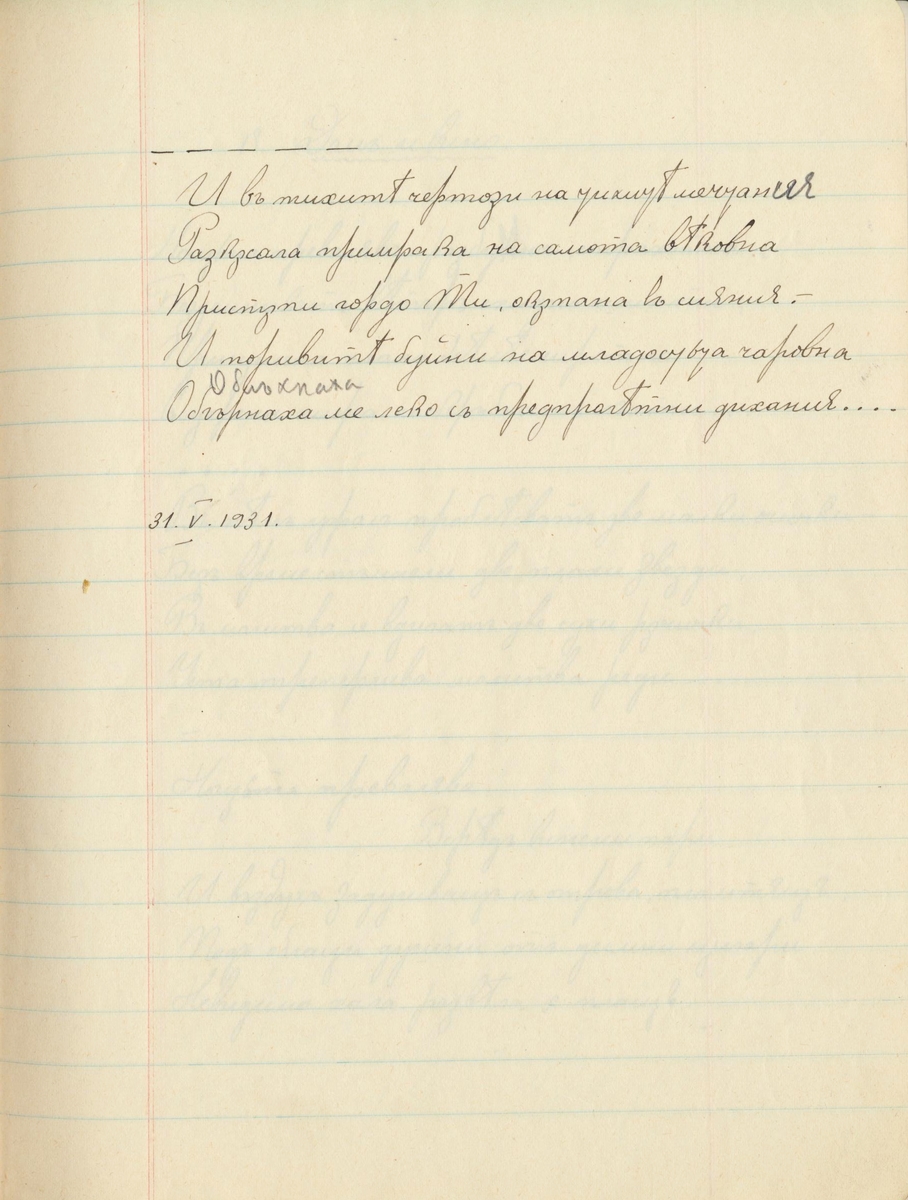 — — — — — —
И въ тихитѣ чертози на мечтания
Разкѫсала примрака на самота вѣковна
Пристѫпи гордо Ти, окѫпана въ сияния.–
И поривитѣ буйни на младостьта чаровна
Облъхнаха
Обгърнаха ме леко съ предпролѣтни дихания....
31. V. 1931.